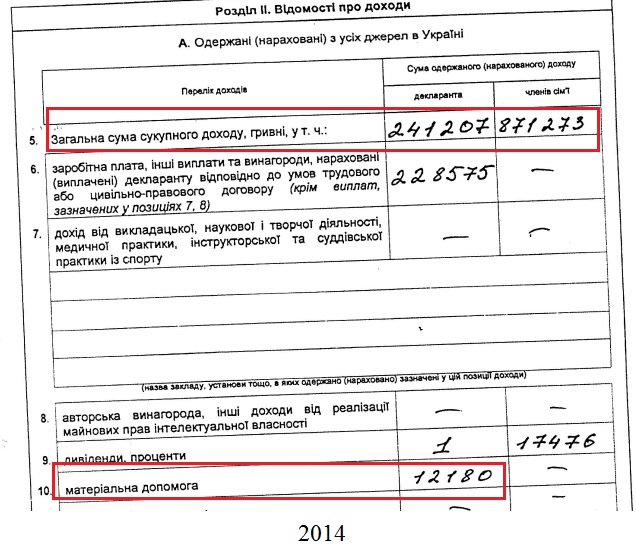 Розділ II. Відомості про доходи
А. Одержані (нараховані) з усіх джерел в Україні
Перелік доходів
Сума одержаного (нарахованого) доходу
декларанта
членів сім'ї
5. Загальна сума сукупного доходу, гривні, у т. ч.: 241207 871273
6. заробітна плата, інші виплати та винагороди, нараховані
(виплачені) декларанту відповідно до умов трудового
або цивільно-правового договору (крім виплат,
зазначених у позиціях 7, 8)
228575 —
7. дохід від викладацької, наукової і творчої діяльності,
медичної практики, інструкторської та суддівської
практики із спорту
— —
(назва закладу, установи тощо, в яких одержано (нараховано) зазначені у цій позиції доходи)
8. авторська винагорода, інші доходи від реалізації
майнових прав інтелектуальної власності
— —
9. дивіденди, проценти 1 17476
10. матеріальна допомога 12180 —
2014